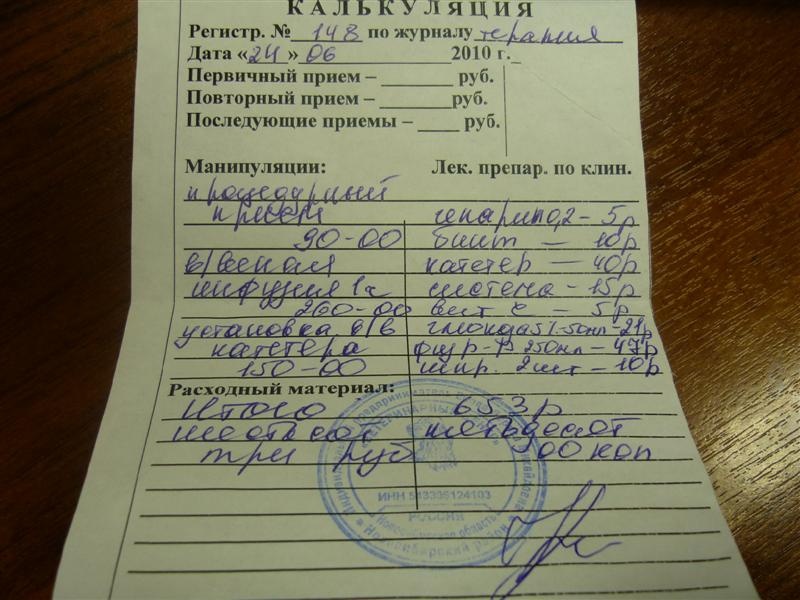 КАЛЬКУЛЯЦИЯ
Регистр. № 148 по журналу терапия
Дата «24» 06 2010 г.
Первичный прием – ______ руб.
Повторный прием – ______ руб.
Последующие приемы – ____ руб.
Манипуляции: Лек. препар. по клин.
процедурный
прием гепарин 0,2 – 5р
90-00 бинт — 10р
в/веная катетер — 40р
инфузия 1ч система - 15р
260-00 вит с — 5р
установка в/в глюкоза 5% - 50мл - 21р
катетера физ р-р 250мл — 47р
150-00 шпр. 2шт — 10р
Расходный материал:
Итого 653р
шестьсот пятьдесят
три руб 00 коп
ВЕТЕРИНАРНЫЙ
РОССИЯ
Новосибирская область
Новосибирский район